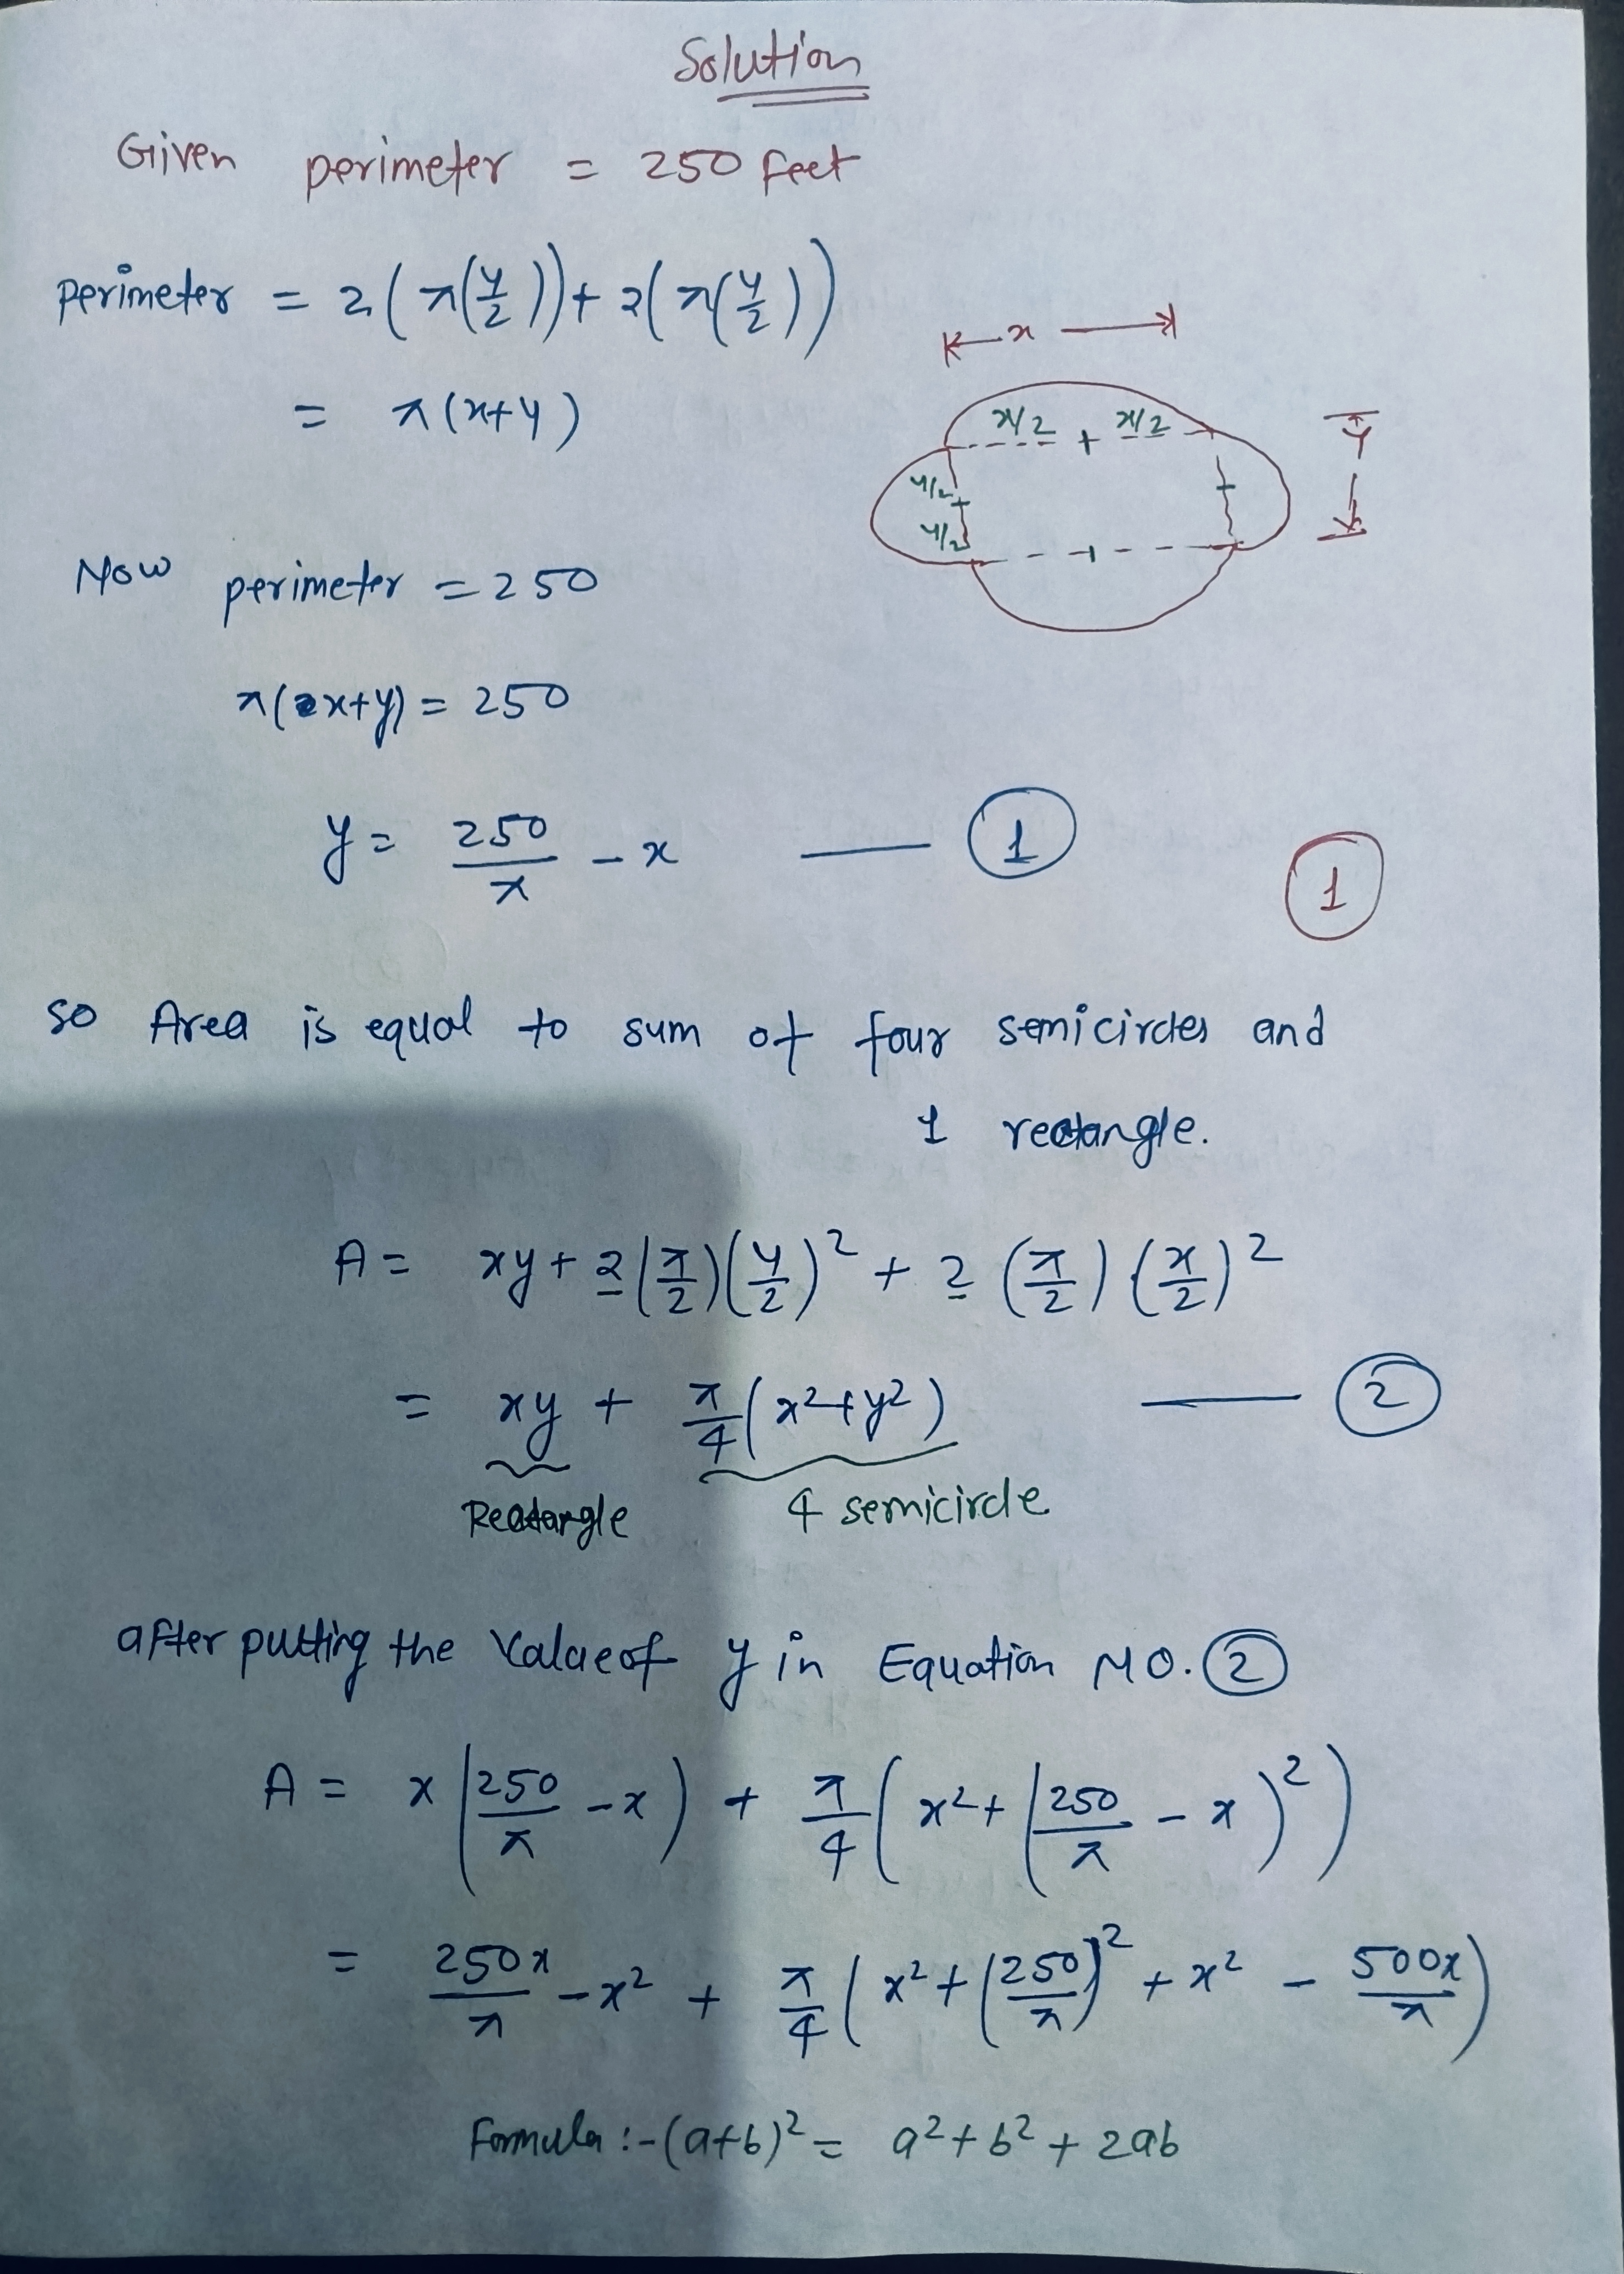 Solution
Given perimeter = 250 feet
perimeter = 2(π(y/2)) + 2(π(y/2))
= π(x+y)
x
x/2 + x/2
y/2
y/2
y
Now perimeter = 250
π(x+y) = 250
y = 250/π - x —— ①
①
so Area is equal to sum of four semicircles and
1 rectangle.
A = xy + 2(π/2)(y/2)² + 2(π/2)(x/2)²
= xy + π/4(x²+y²) —— ②
Rectangle 4 semicircle
after putting the Value of y in Equation NO. ②
A = x(250/π - x) + π/4(x² + (250/π - x)²)
= 250x/π - x² + π/4(x² + (250/π)² + x² - 500x/π)
Formula :- (a+b)² = a² + b² + 2ab